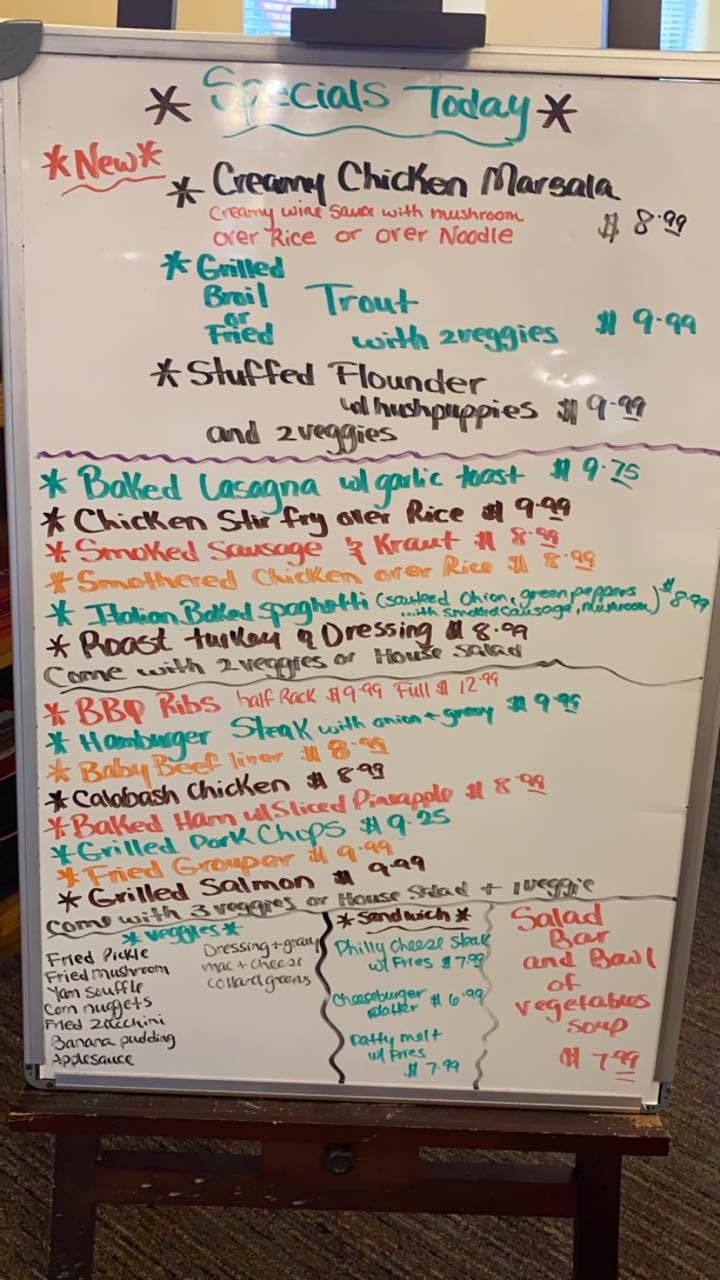 * Specials Today *
*New*
* Creamy Chicken Marsala
Creamy wine sauce with mushroom
over Rice or over Noodle $ 8.99
* Grilled
Broil
or
Fried
Trout
with 2 veggies $ 9.99
* Stuffed Flounder
w/ hushpuppies $ 9.99
and 2 veggies
* Baked Lasagna w/ garlic toast $ 9.75
* Chicken Stir fry over Rice $ 9.99
* Smoked Sausage & Kraut $ 8.99
* Smothered Chicken over Rice $ 8.99
* Italian Baked Spaghetti (sauteed Onion, green peppers
...with smoked sausage, mushroom) $ 8.99
* Roast turkey & Dressing $ 8.99
Come with 2 veggies or House Salad
* BBQ Ribs half Rack $ 9.99 Full $ 12.99
* Hamburger Steak with onion + gravy $ 9.99
* Baby Beef liver $ 8.99
* Calabash Chicken $ 8.99
* Baked Ham w/ Sliced Pineapple $ 8.99
* Grilled Pork Chops $ 9.25
* Fried Grouper $ 9.99
* Grilled Salmon $ 9.99
Come with 3 veggies or House Salad + 1 veggie
* Veggies *
Fried Pickle
Fried mushroom
Yam Souffle
Corn nuggets
Fried Zucchini
Banana pudding
Applesauce
Dressing + gravy
mac + cheese
collard greens
* Sandwich *
Philly Cheese Steak
w/ Fries $ 7.99
Cheeseburger
platter $ 6.99
Patty melt
w/ Fries
$ 7.99
Salad
Bar
and Bowl
of
vegetables
soup
$ 7.99